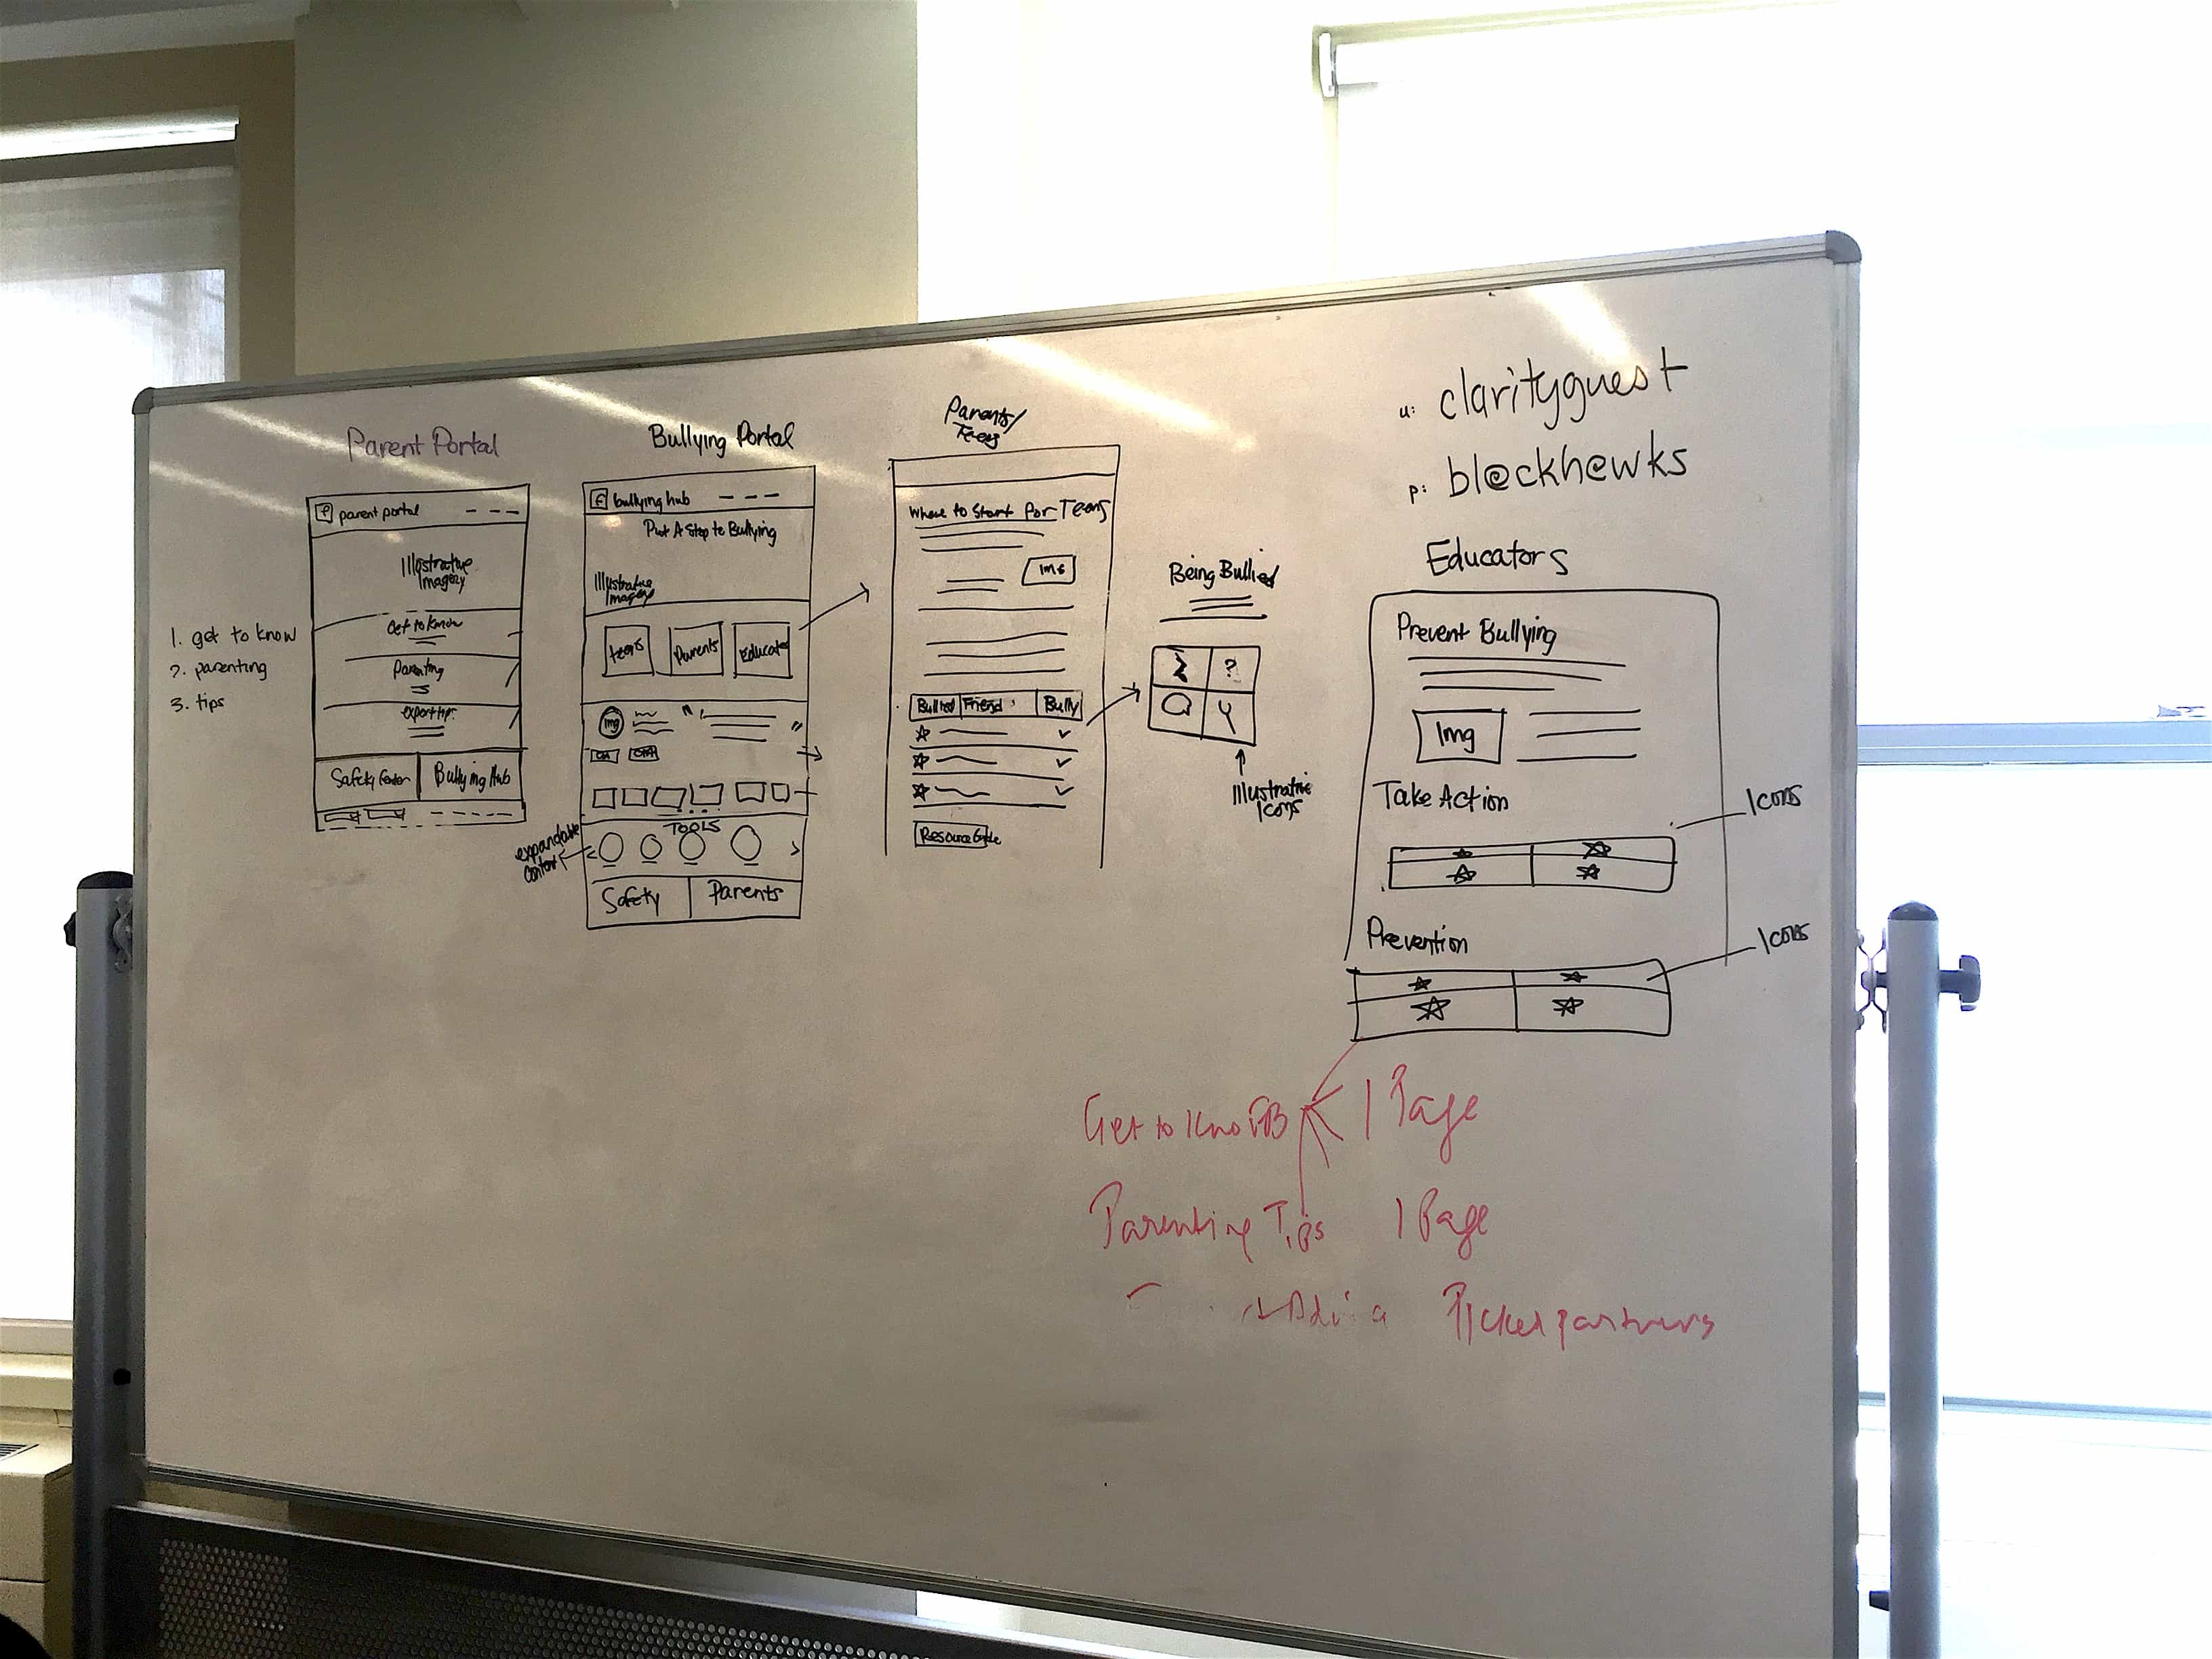 Parent Portal
1. get to know
2. parenting
3. tips
f parent portal
Illustrative
Imagery
Get to know
Parenting
expert tips
Safety Center
Bullying Hub
Bullying Portal
f bullying hub
Put A Stop to Bullying
Illustrative
Imagery
teens
Parents
Educator
img
TOOLS
expandable
content
Safety
Parents
Parents/
Teens
Where to Start for Teens
Img
Bullied
Friend
Bully
Resource Guide
Being Bullied
?
Illustrative
Icons
u: clarityguest
p: bl@ckh@wks
Educators
Prevent Bullying
Img
Take Action
Icons
Prevention
Icons
Get to Kno FB 1 Page
Parenting Tips 1 Page
partners